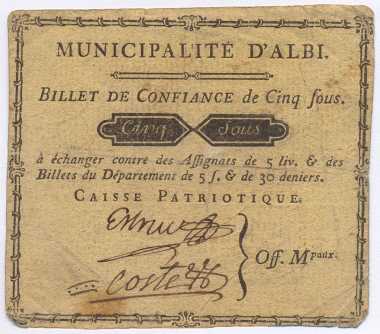 MUNICIPALITÉ D'ALBI.
BILLET DE CONFIANCE de Cinq ſous.
Cinq Sous
à échanger contre des Aſſignats de 5 liv. & des
Billets du Département de 5 ſ. & de 30 deniers.
CAISSE PATRIOTIQUE.
Off. Mpaux.
coste